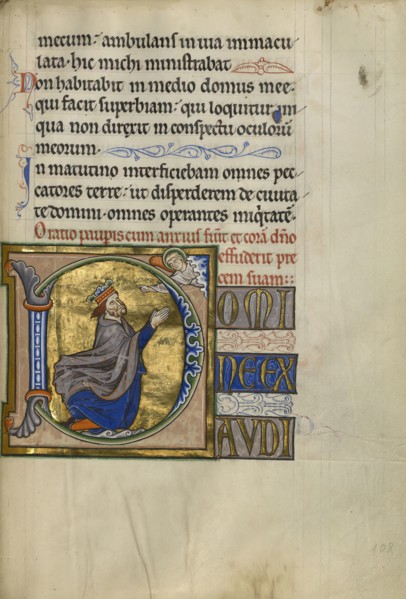 mecum: ambulans in uia immacu
lata. hic michi ministrabat
Non habitabit in medio domus mee.
qui facit superbiam: qui loquitur in
qua non direxit in conspectu oculorū
meorum.
In matutino interficiebam omnes pec
catores terre: ut disperderem de ciuita
te domini. omnes operantes iniqͥtatē.
Oratio paupis cum anxius fuīt et corā dn̄o
effuderit pre
cem suam::
DOMI
NE EX
AVDI
108